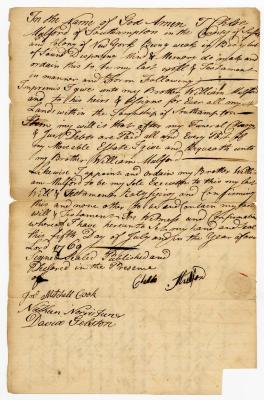 In the Name of God Amen I
Mulford of Southampton in the County of
and Colony of New York Being weak in Body but
of Sound Disposing Mind & Memory do make and
ordain this to be my last will & Testament
in manner and Form Following
Imprimis I give unto my Brother William Mulford
and to his heirs & assigns for Ever all my
Land within the Township of Southampton
Item my will is that after my Funeral Charges
& Just Debts are Paid all and Every Part of
my Moveable Estate I give and Bequeath unto
my Brother William Mulford
Likewise I appoint and ordain my Brother William
Mulford to be my Sole Executor to this my last
Will & Testament Ratifying and Confirming
this and none other to be and Contain my last
will & Testament In Witness and Confirmation
whereof I have hereunto Set my hand and seal
this day of July and in the Year of our
Lord 1769
Signed Sealed Published and
Declared in the Presence
of
Mulford
Mitchell Cook
Nathan Norris Junr
David Gelston